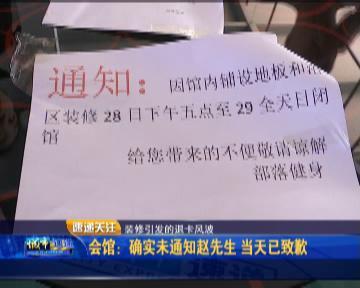 通知：因馆内铺设地板和
区装修 28 日下午五点至 29 全天日闭
馆
给您带来的不便敬请谅解
部落健身
速递天注
装修引发的退卡风波
会馆：确实未通知赵先生 当天已致歉